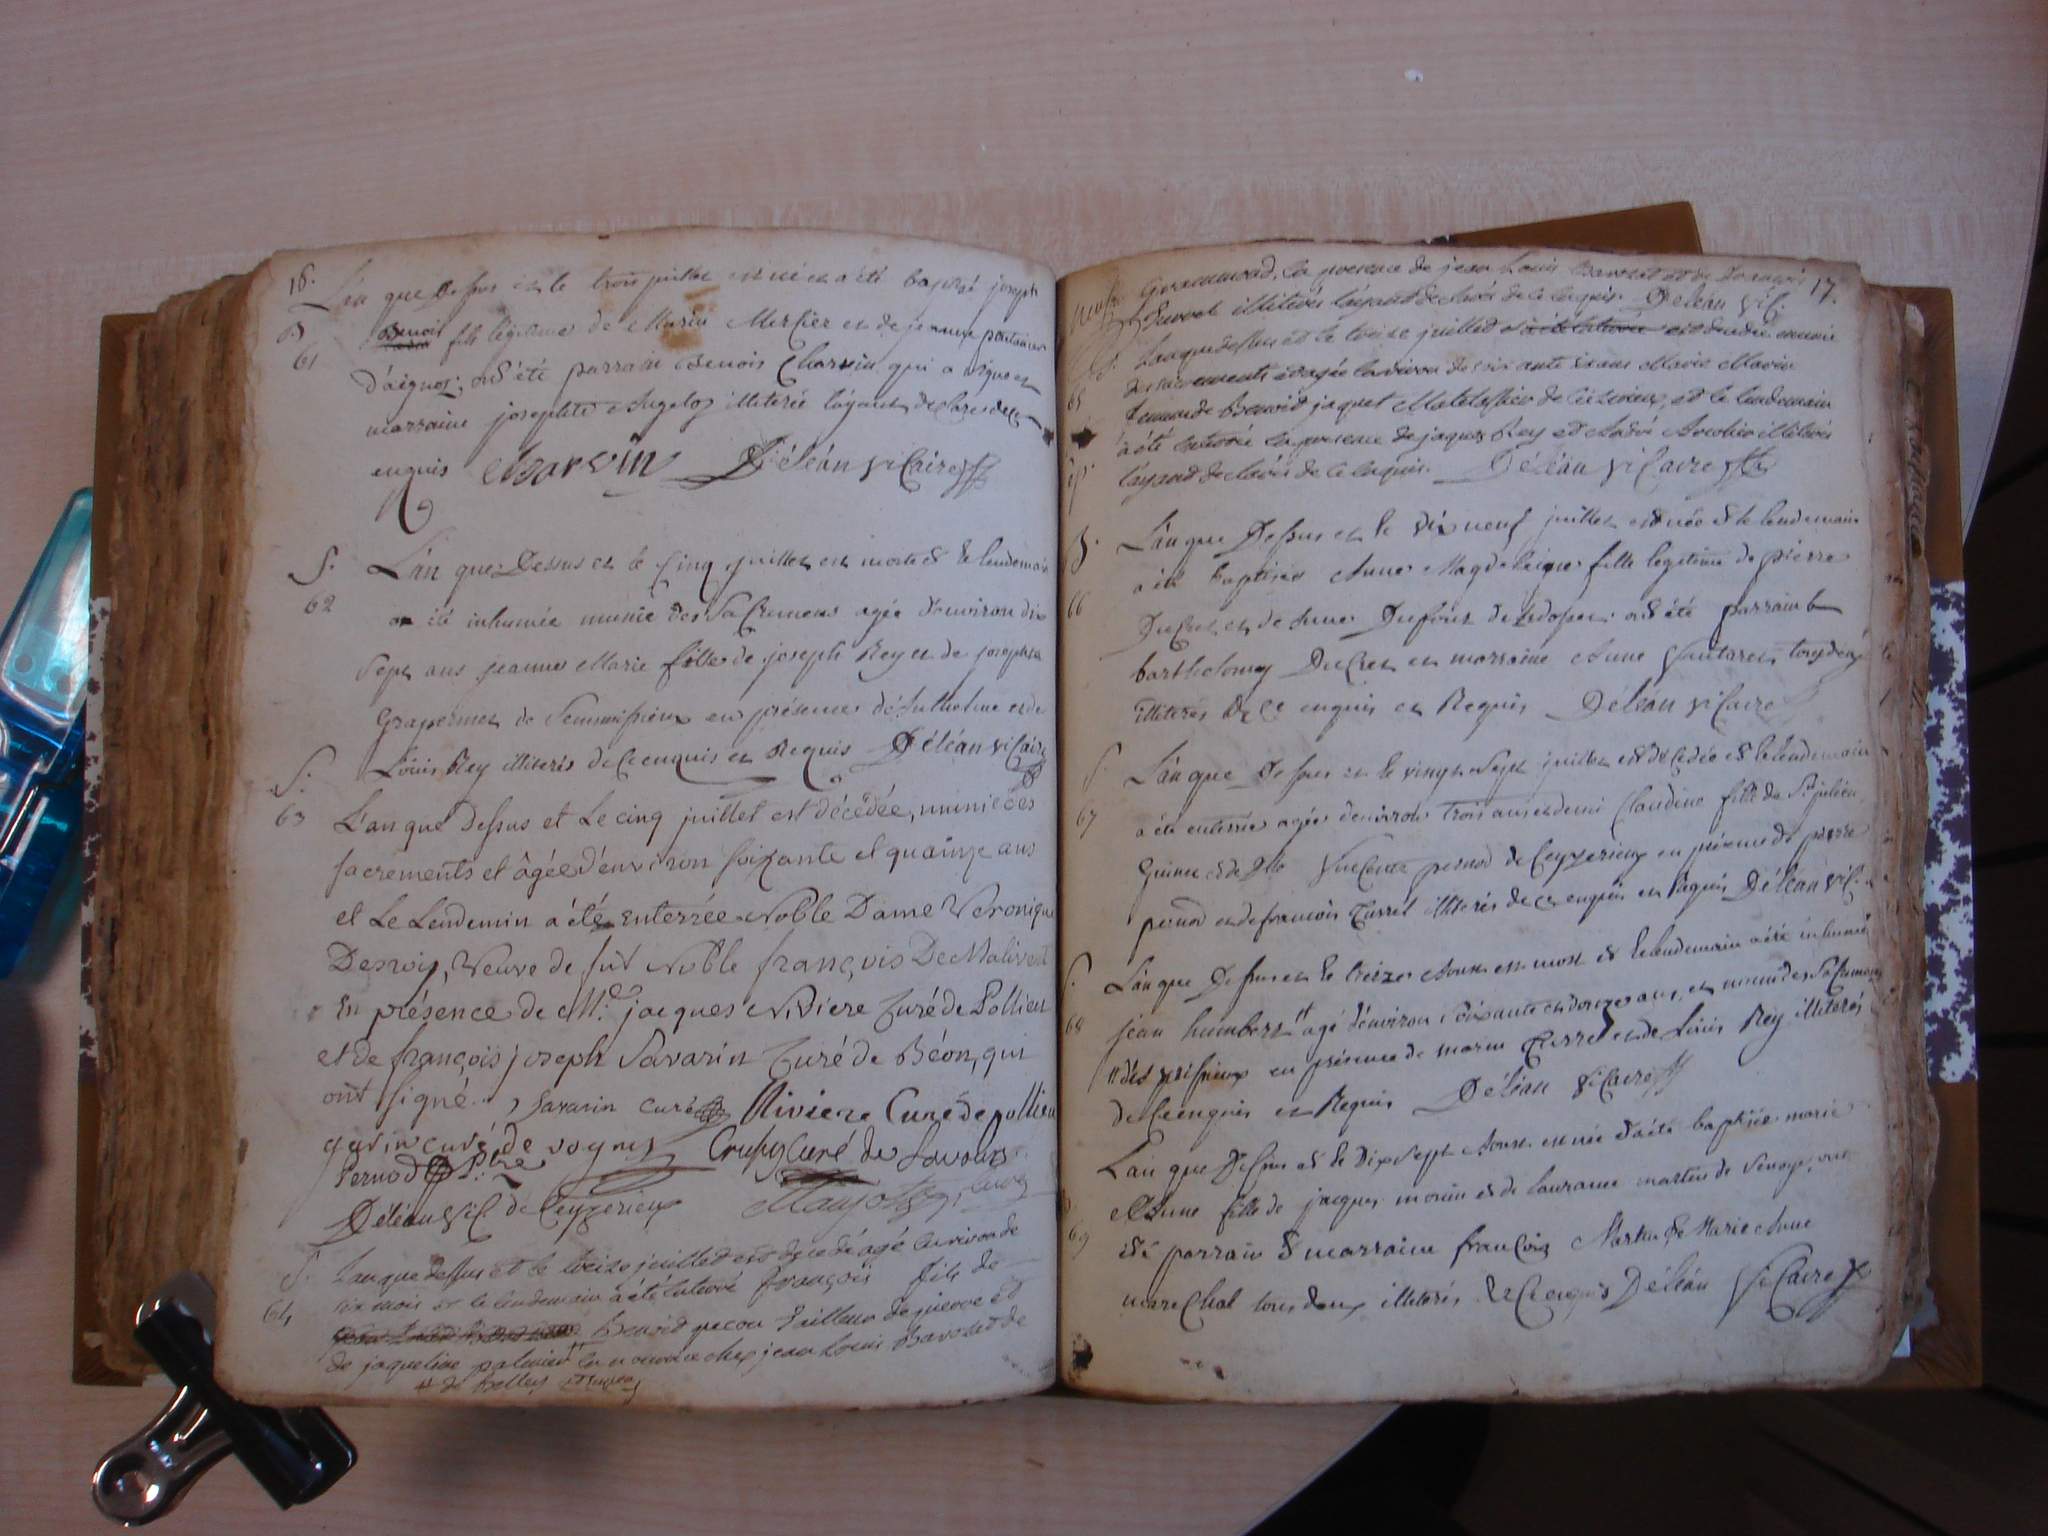 16.
L'an que Dessus et le trois juillet est né et a été baptisé joseph
B Benoit fils légitime de Marin Mercier et de jeanne
61 d'aignoz; ont été parrain Benoit Charvin qui a signé et
marraine josephte illiterée l'ayant declaré de ce
enquis Charvin Déléan vicaire
S. L'an que Dessus et le Cinq juillet est morte et le lendemain
62 a été inhumée munie des Sacremens agée d'environ dix
sept ans jeanne Marie fille de joseph Rey et de josephte
de en présence d'Anthelme et de
Louis Rey illiterés de Ce enquis et Requis Déléan vicaire
S.
63 L'an que dessus et Le cinq juillet est décédée, munie des
sacrements et âgée d'environ soixante et quainze ans
et Le Lendemin a été enterrée Noble Dame Veronique
Desroys, Veuve de fut Noble françois De Malivert
En présence de Mr. jacques Riviere Curé de Pollieu
et de françois joseph Savarin Curé de Béon, qui
ont signé. Savarin curé Riviere Curé de pollieu
curé de vognes Crussy Curé de Lavours
Pernod Ptre
Déléan Vic. de Ceyzerieu
S. L'an que dessus et le treize juillet est decedé agé environ de
64 six mois et le lendemain a été enterré françois fils de
Benoid tailleur de pierre et
de jaqueline en nourrice chez jean Louis Bavozet de
# de Belley
17.
Grammond, en presence de jean Louis Bavozet et de françois
illiterés l'ayant declaré de ce enquis. Déléan vic.
S. L'an que dessus et le treize juillet est decedée munie
65 des sacrements et agée environ de soixante ans Marie Marin
femme de Benoid jaquet de Ceizerieux, et le lendemain
a été enterrée en presence de jaques Rey et André illiterés
l'ayand declaré de ce enquis. Déléan vicaire
B. L'an que Dessus et le dix neuf juillet est née et le lendemain
a été baptisée Anne Magdeleigne fille legitime de pierre
66 Ducret et de Anne Dufour de ont été parrain
barthelemy Ducret et marraine Anne tous deux
illiterés De ce enquis et Requis Déléan vicaire
S. L'an que Dessus et le vingt Sept juillet est décédée et le lendemain
67 a été enterrée agée d'environ trois ans et demi Claudine fille de St julien
et de pernod de Ceyzerieux en présence de pierre
pernod et de francois Curret illiterés de ce enquis et Requis Déléan vic.
S. L'an que Dessus et le treize Aoust est mort et le lendemain a été inhumé
68 jean humbert # agé d'environ Soixante et douze ans, et muni des Sacremens
en présence de marin et de Louis Rey illiterés
de Ce enquis et Requis Déléan vicaire
L'an que Dessus et le Dix Sept Aoust est née et a été baptisée marie
Anne fille de jacques morin et de Laurance martin de ont
69 été parrain & marraine françois Martin & Marie Anne
marechal tous deux illiterés De Ce enquis Déléan Vicaire